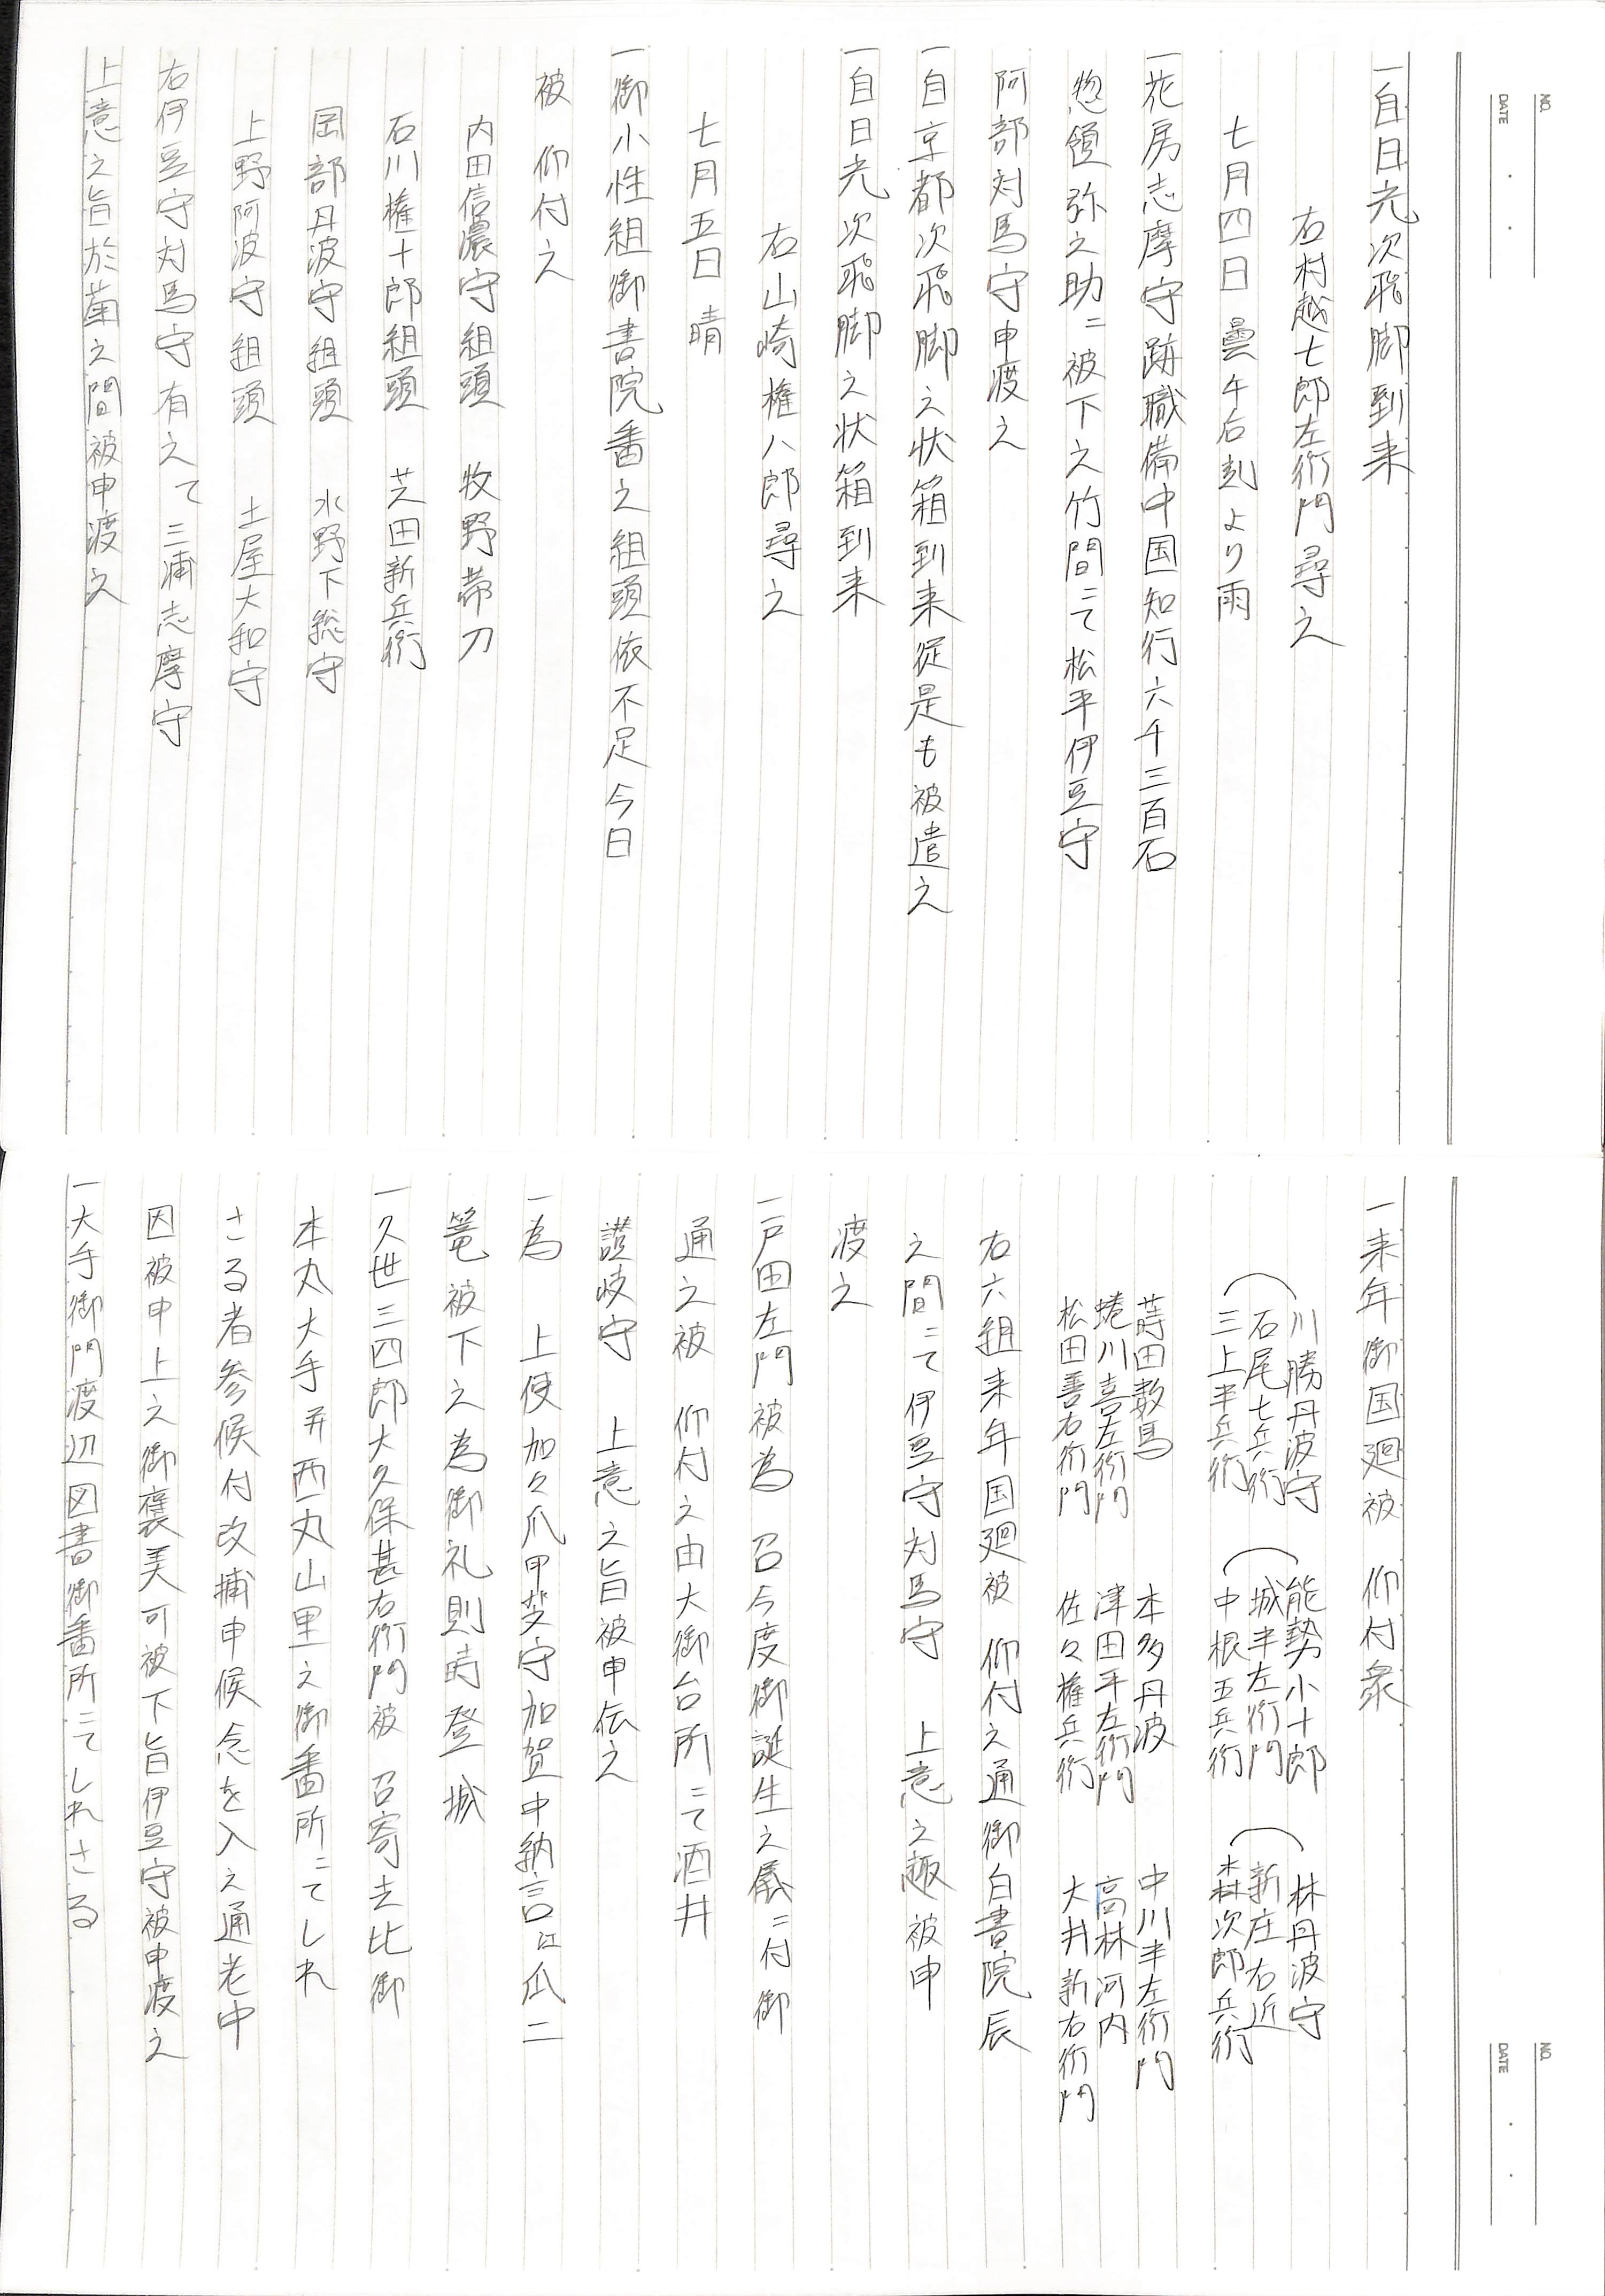 NO.
DATE
一自日光次飛脚到来
右村越七郎左衛門尋之
七月四日 曇午后刻より雨
一花房志摩守跡職備中国知行六千三百石
惣領弥之助ニ被下之竹間ニて松平伊豆守
阿部対馬守申渡之
一自京都次飛脚之状箱到来従是も被遣之
一自日光次飛脚之状箱到来
右山崎権八郎尋之
七月五日 晴
一御小性組御書院番之組頭依不足今日
被 仰付之
内田信濃守組頭 牧野帯刀
石川権十郎組頭 芝田新兵衛
岡部丹波守組頭 水野下総守
上野阿波守組頭 土屋大和守
右伊豆守対馬守有之て三浦志摩守
上意之旨於菊之間被申渡之
NO.
DATE
一来年御国廻被 仰付衆
川勝丹波守 能勢小十郎 林丹波守
石尾七兵衛 城半左衛門 新庄右近
三上半兵衛 中根五兵衛 森次郎兵衛
蒔田数馬 本多丹波 中川半左衛門
蜷川喜左衛門 津田平左衛門 高林河内
松田善右衛門 佐々権兵衛 大井新右衛門
右六組来年国廻被 仰付之通御白書院辰
之間ニて伊豆守対馬守 上意之趣被申
渡之
一戸田左門被為 召今度御誕生之儀ニ付御
通之被 仰付之由大御台所ニて酒井
讃岐守 上意之旨被申伝之
一為 上使加々爪甲斐守加賀中納言江瓜二
篭被下之為御礼則時登城
一久世三四郎大久保甚右衛門被 召寄去比御
本丸大手并西丸山里之御番所ニてしれ
さる者参候付改捕申候念を入之通老中
因被申上之御褒美可被下旨伊豆守被申渡之
一大手御門渡辺図書御番所ニてしれさる